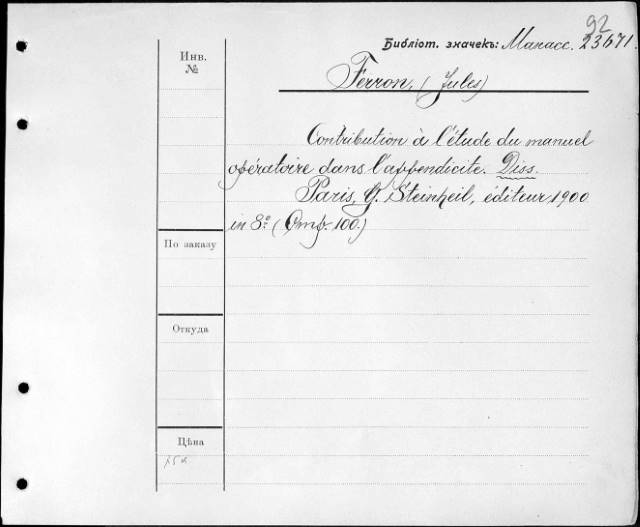 92
Библіот. значекъ: Манасс. 23671.
Инв.
№
Ferron, (Jules)
Contribution à l'étude du manuel
opératoire dans l'appendicite. Diss.
Paris, G. Steinheil, éditeur, 1900
in 8º (Стр. 100.)
По заказу
Откуда
Цѣна